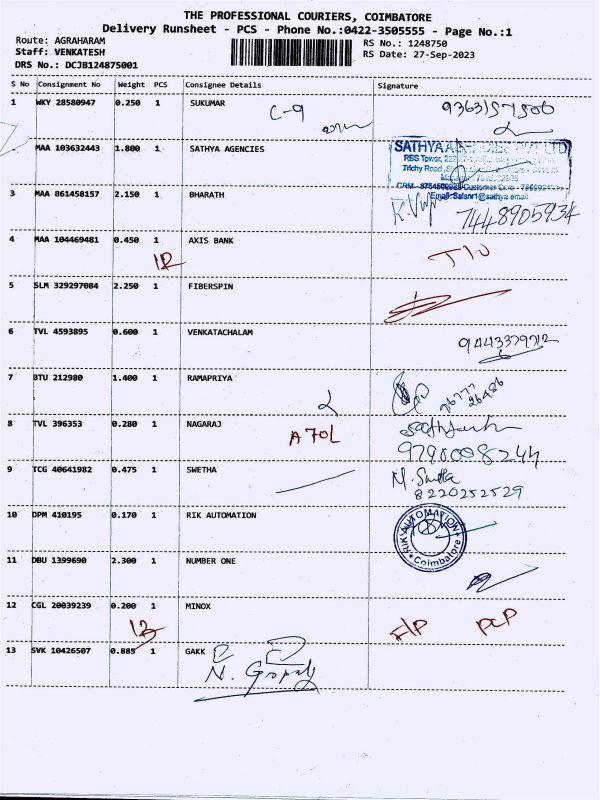 THE PROFESSIONAL COURIERS, COIMBATORE
Delivery Runsheet - PCS - Phone No.:0422-3505555 - Page No.:1
Route: AGRAHARAM RS No.: 1248750
Staff: VENKATESH RS Date: 27-Sep-2023
DRS No.: DCJB124875001
S No Consignment No Weight PCS Consignee Details Signature
1 WKY 28580947 0.250 1 SUKUMAR C-9
MAA 103632443 1.800 1 SATHYA AGENCIES
3 MAA 861458157 2.150 1 BHARATH 7448905934
4 MAA 104469481 0.450 1 AXIS BANK
5 SLM 329297084 2.250 1 FIBERSPIN
6 TVL 4593895 0.600 1 VENKATACHALAM
7 BTU 212980 1.400 1 RAMAPRIYA 76777 26486
8 TVL 396353 0.280 1 NAGARAJ A 70L
9790008244
9 TCG 40641982 0.475 1 SWETHA M. Swetha
8220252529
10 DPM 410195 0.170 1 RIK AUTOMATION RIK AUTOMATION Coimbatore
11 DBU 1399690 2.300 1 NUMBER ONE
12 CGL 20039239 0.200 1 MINOX
13 SVK 10426507 0.885 1 GAKK